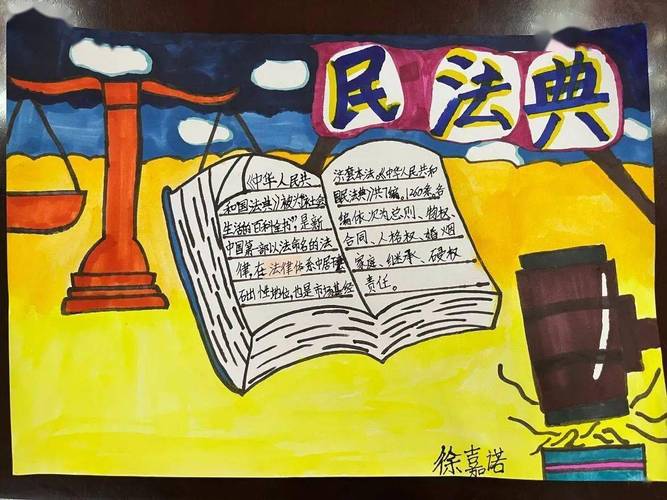 民法典
《中华人民共
和国法典》被称为“社会
生活的百科全书”,是新
中国第一部以法命名的法
律,在法律体系中居
础性地位,也是市场基经
济套本法。《中华人民共和
国民法典》共7编、1260条,各
编依次为总则、物权、
合同、人格权、婚姻
家庭、继承、侵权
责任。
徐嘉诺